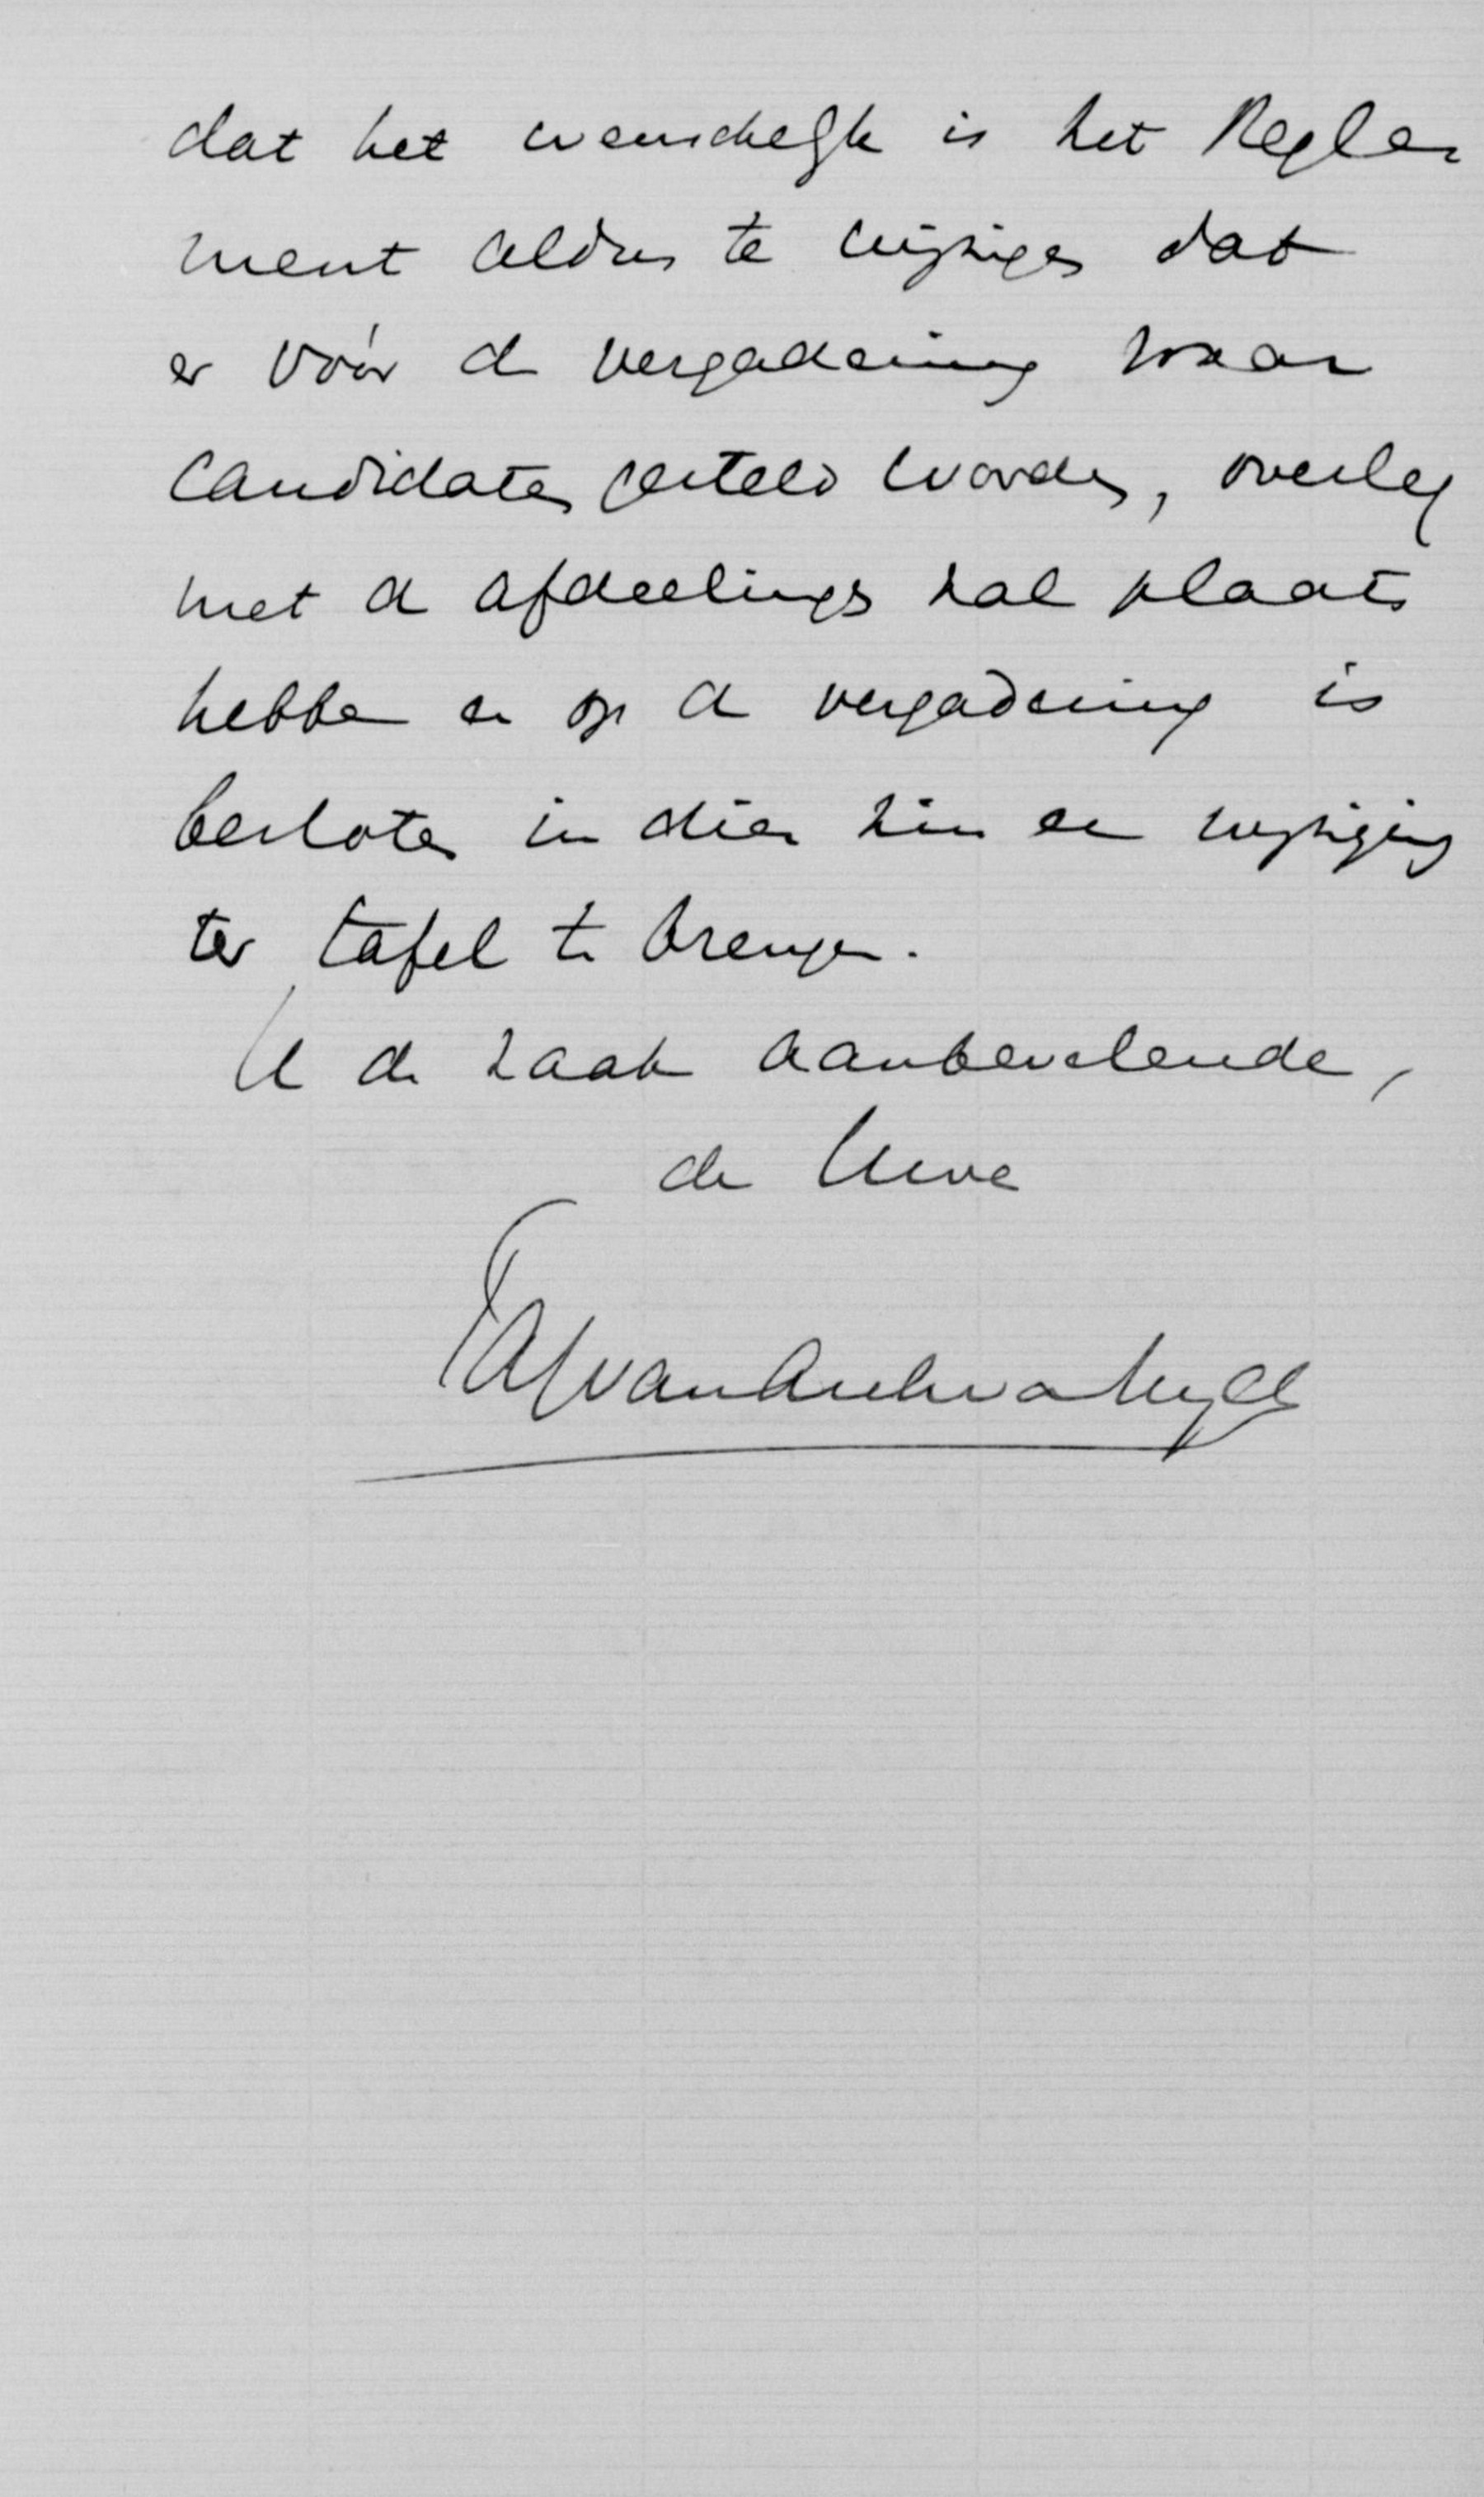 dat het wenschelijk is het Regle-
ment aldus te wijzigen dat
er vóór de vergadering waar
candidaten gesteld worden, overleg
met de afdeelings zal plaats
hebben en op de vergadering is
besloten in dien zin een wijziging
ter tafel te brengen.
U de zaak aanbevelende,
de Uwe